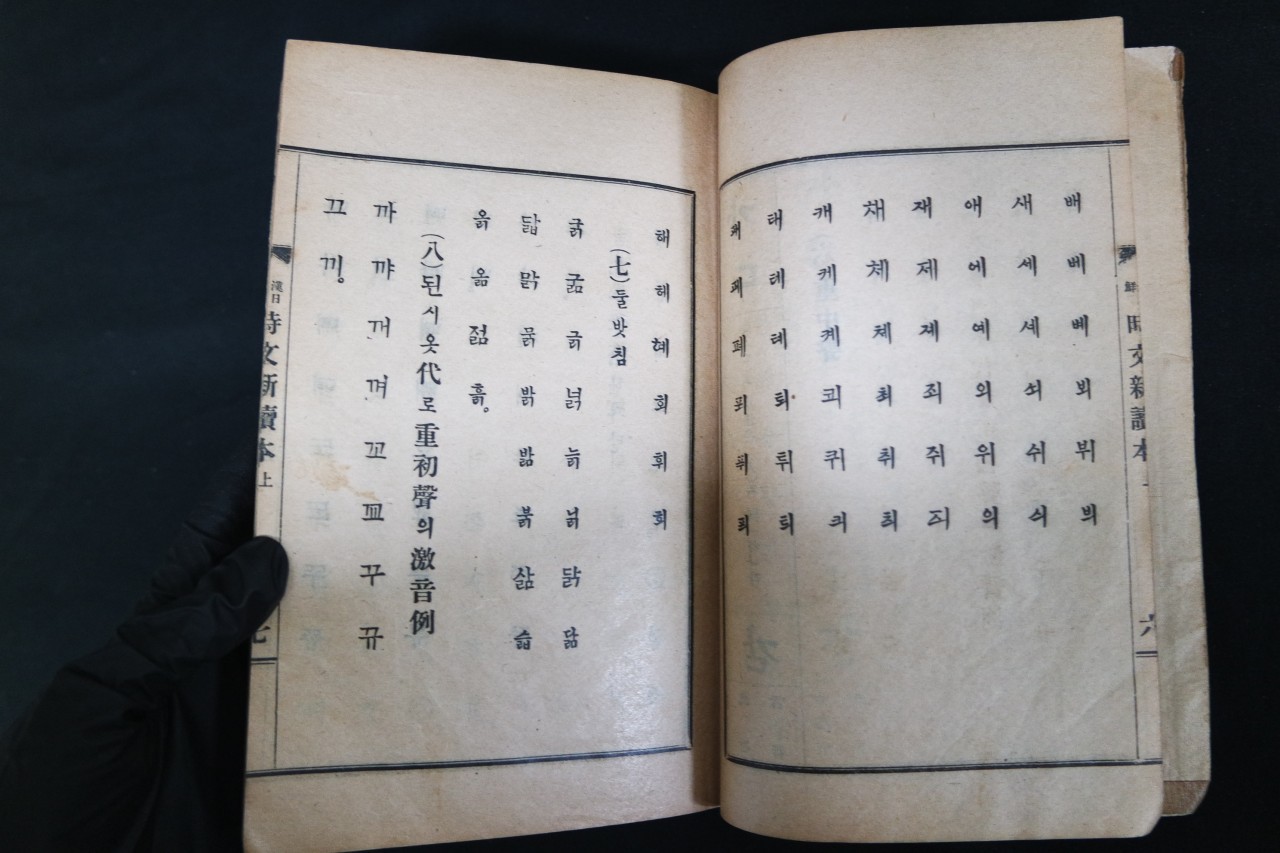 時文新讀本
六
배 베 볘 뵈 뷔 븨
새 세 셰 쇠 쉬 싀
애 에 예 외 위 의
재 제 졔 죄 쥐 즤
채 체 쳬 최 취 츼
캐 케 켸 쾨 퀴 킈
태 테 톄 퇴 튀 틔
패 페 폐 푀 퓌 픠
해 헤 혜 회 휘 희
(七)둘밧침
굵 굶 긁 넑 늙 닑 닭 닮
닯 맑 묽 밝 밟 붉 삶 슯
옭 옮 젊 흙。
(八)된시옷代로重初聲의激音例
까 꺄 꺼 껴 꼬 꾜 꾸 뀨
끄 끼。
漢日 時文新讀本 上
七